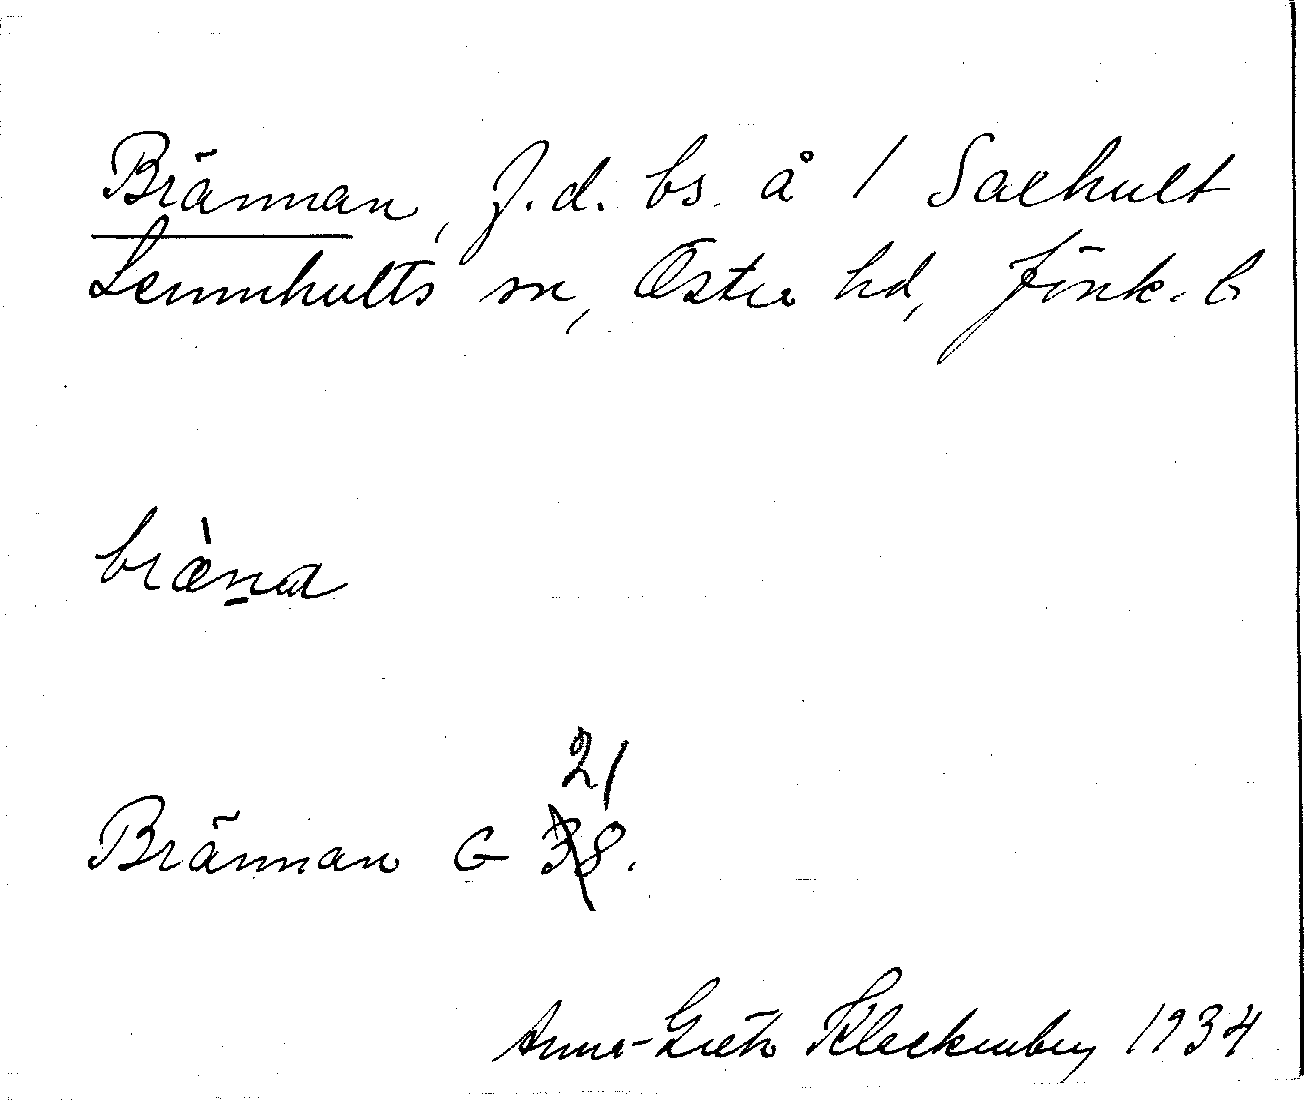 Brännan, f.d. bs. å 1 Saxhult
Lemnhults sn, Östra hd, Jönk. l
bràna
21
Brännan G 38.
Anna-Greta Kleckenberg 1934